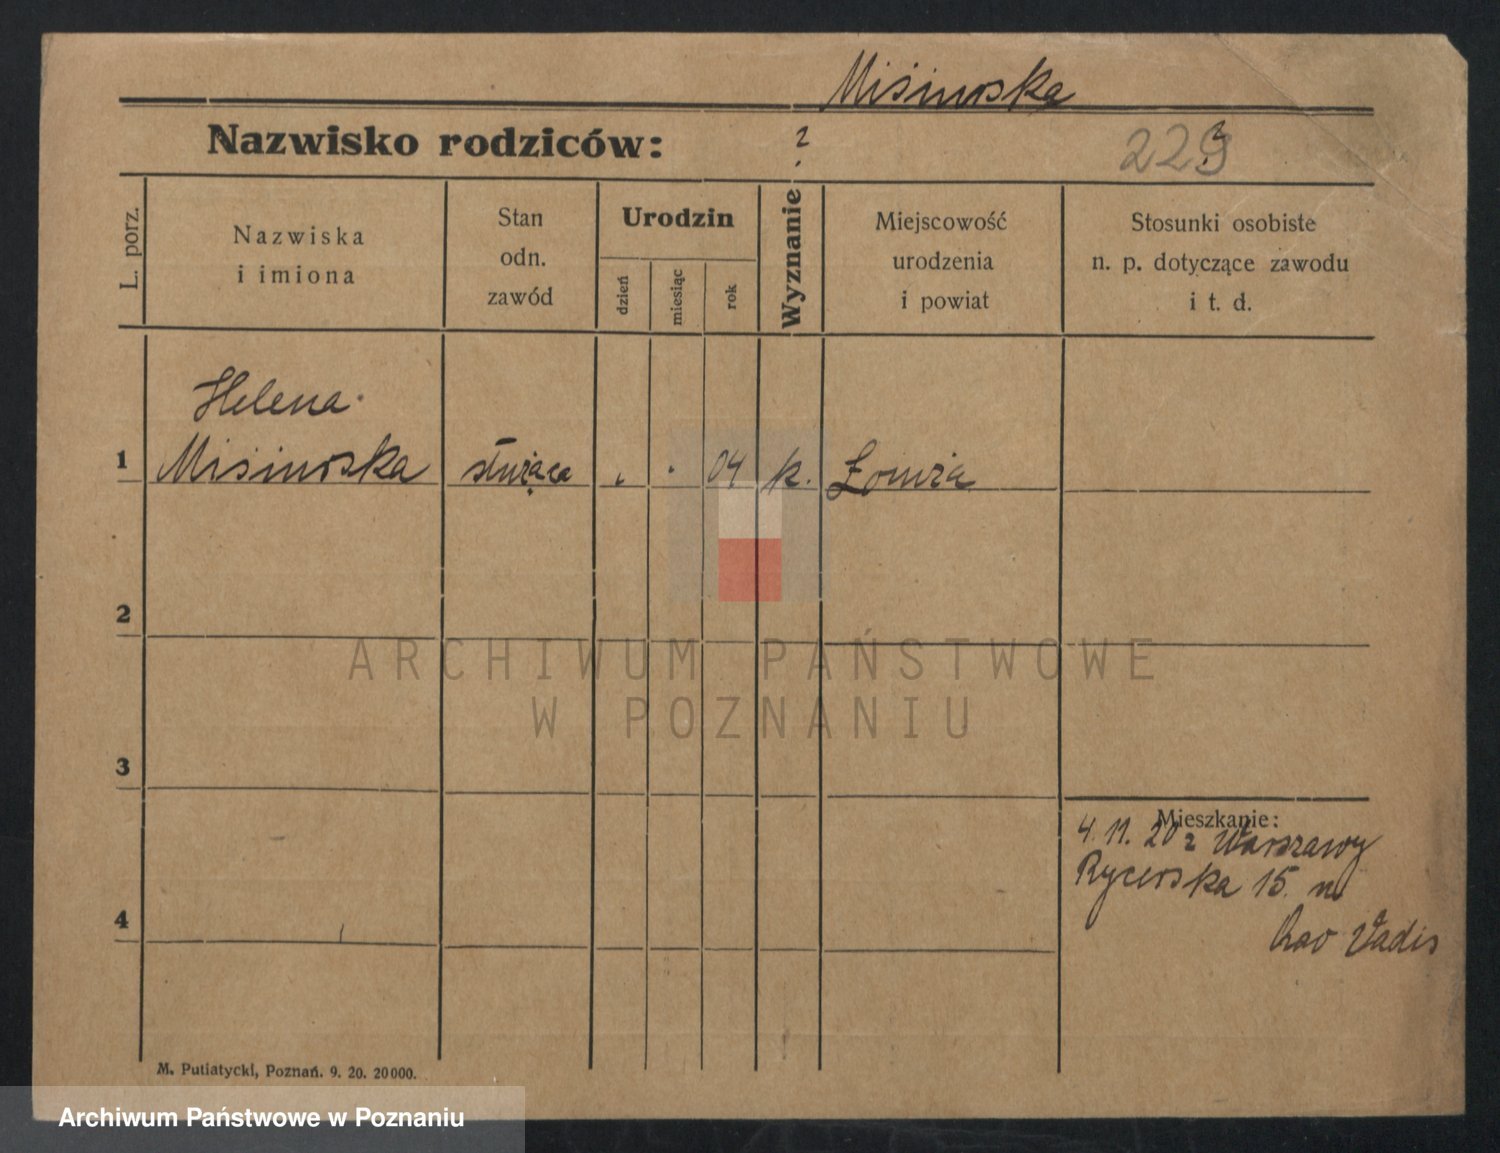 Miśiurska
Nazwisko rodziców: ? ?
223
L. porz.
Nazwiska
i imiona
Stan
odn.
zawód
Urodzin
dzień
miesiąc
rok
Wyznanie
Miejscowość
urodzenia
i powiat
Stosunki osobiste
n. p. dotyczące zawodu
i t. d.
Helena
1 Miśiurska służąca . . 04 k. Łomża
2
ARCHIWUM PAŃSTWOWE
W POZNANIU
3
Mieszkanie:
4. 11. 20 z Warszawy
Rycerska 15.
4
Vadis
M. Putiatycki, Poznań. 9. 20. 20000.
Archiwum Państwowe w Poznaniu